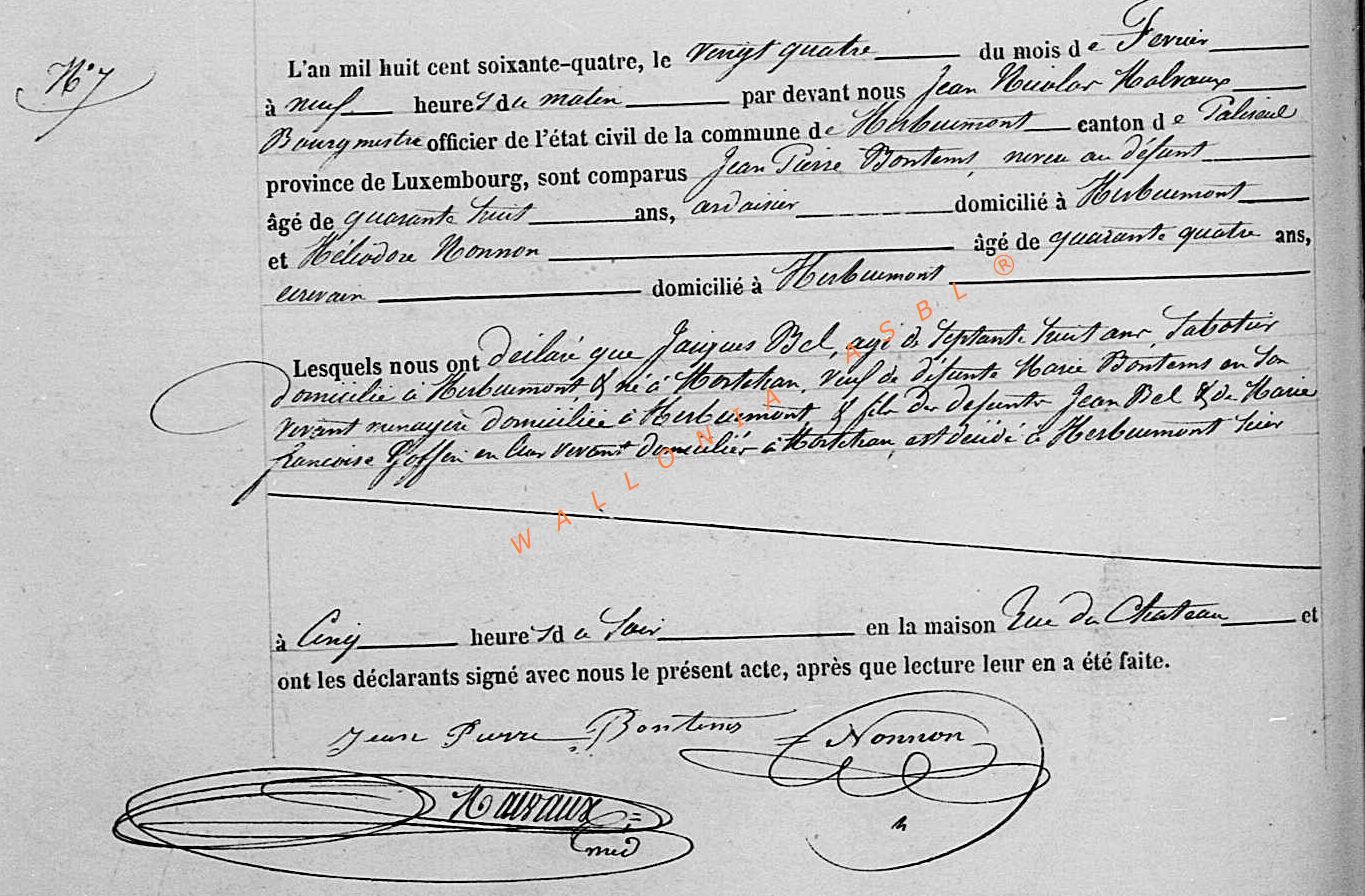 N° 7
L'an mil huit cent soixante-quatre, le vengt quatre du mois de Fevrier
à neuf heures du matin par devant nous Jean Nicolas Malvaux
Bourgmestre officier de l'état civil de la commune de Herbeumont canton de Paliseul
province de Luxembourg, sont comparus Jean Pierre Bontems, neveu au défunt
âgé de quarante huit ans, ardoisier domicilié à Herbeumont
et Héliodore Nonnon âgé de quarante quatre ans,
écrivain domicilié à Herbeumont
Lesquels nous ont déclaré que Jacques Bel, agé de septante huit ans, Sabotier
domicilié à Herbeumont, & né à Mortehan, veuf de défunte Marie Bontems en son
vivant menagère domiciliée à Herbeumont & fils des defunts Jean Bel & de Marie
francoise Goffin en leur vivant domiciliés à Mortehan, est décédé à Herbeumont hier
à Cinq heures du Soir en la maison Rue du Chateau et
ont les déclarants signé avec nous le présent acte, après que lecture leur en a été faite.
Jean Pierre Bontems Nonnon
Malvaux
WALLONIA ASBL ®